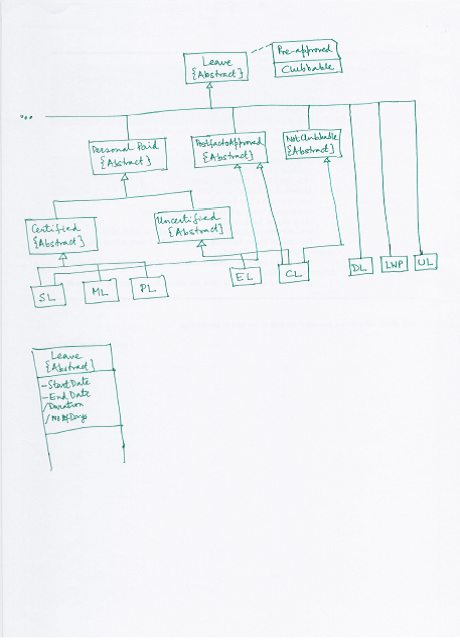 Leave
{Abstract}
Pre-approved
Clubbable
...
Personal Paid
{Abstract}
PostfactoApproved
{Abstract}
NotClubbable
{Abstract}
Certified
{Abstract}
Uncertified
{Abstract}
SL
ML
PL
EL
CL
DL
LWP
UL
Leave
{Abstract}
-StartDate
-End Date
/Duration
/NoOfDays